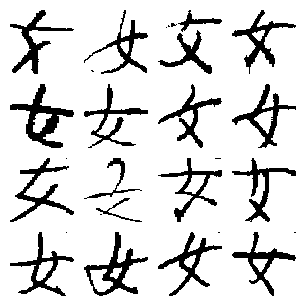 女女女女
女女女女
女女女女
女女女女